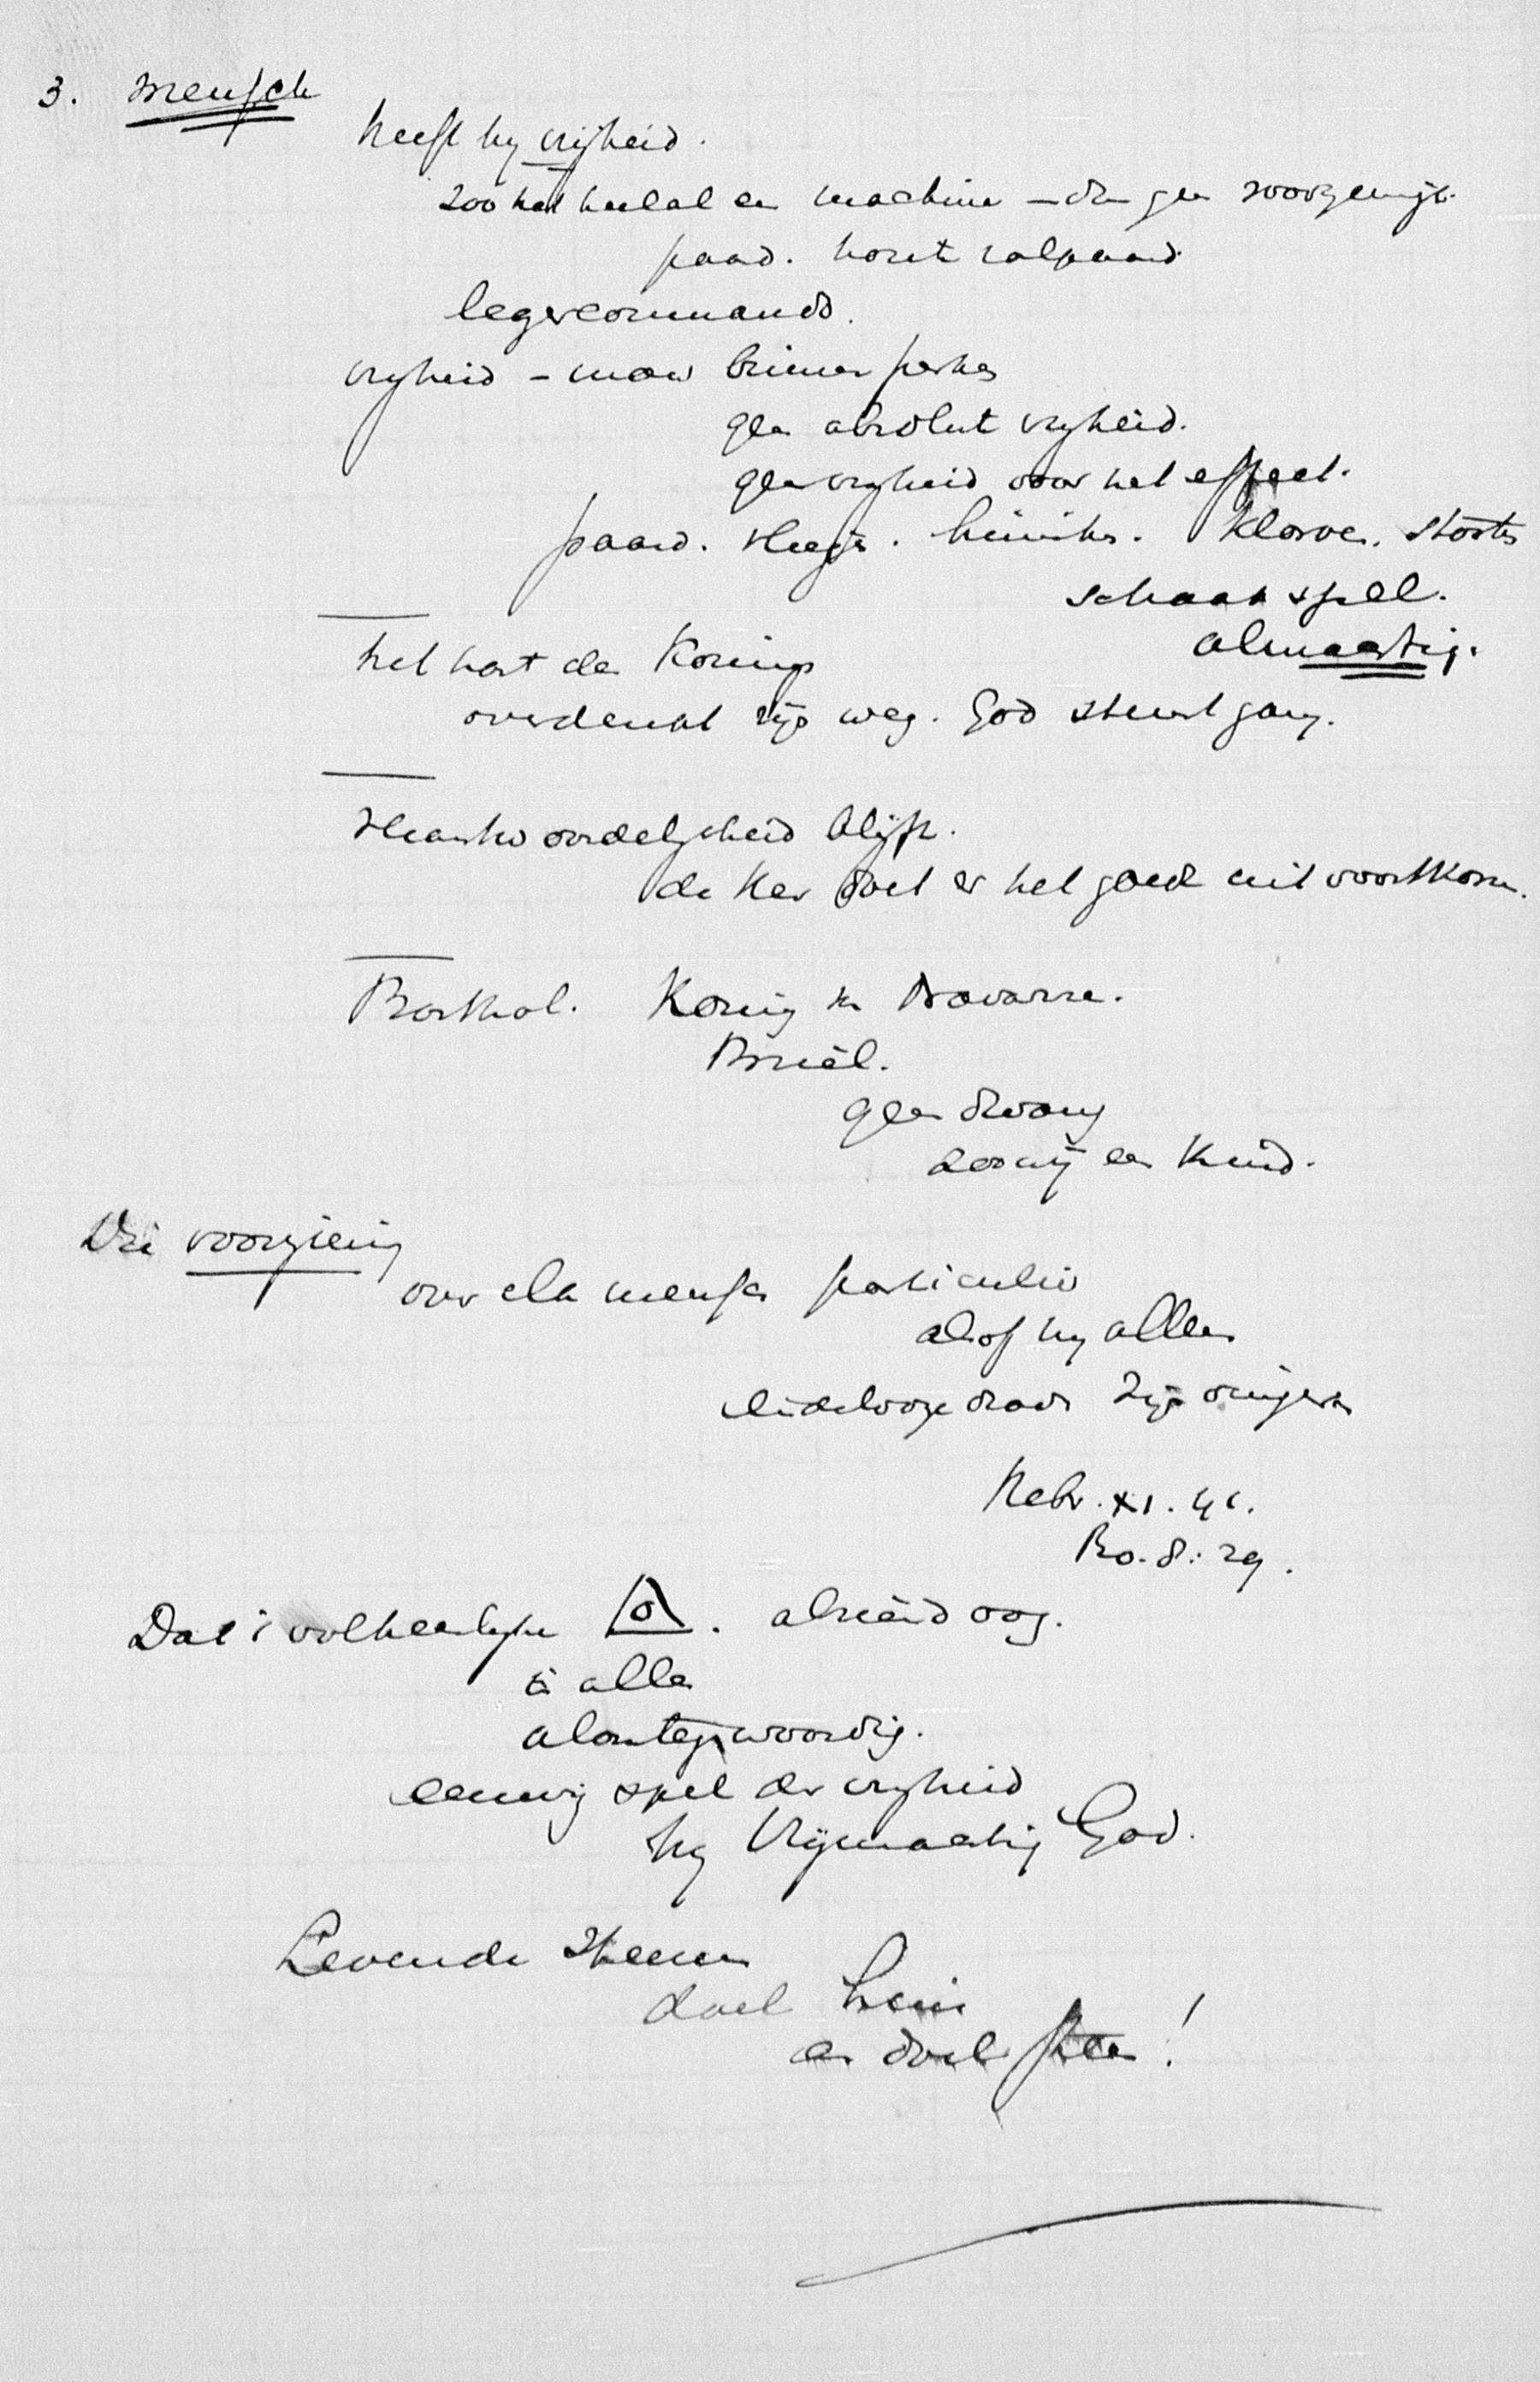 3. mensch
heeft hy vrijheid.
zoo het heelal een machine – dan geen voorzienigh.
paard. houte
legercommando.
vryheid – maar binnen perken
geen absolute vryheid.
geen vryheid voor het effect.
paard. vleugels. hinniken. kloove. storten
schaakspel.
almachtig.
het hart der Koning
overdenkt zijn weg. God stuurt gang.
Verantwoordelijkheid blijft.
de Heer doet er het goede uit voortkomen.
Barthol. Koning v. Navarre.
Briël.
geen dwang
zoo wij een Kind.
Die voorziening
over elk mensch particulier
alsof hy alleen
eindelooze draad
Hebr. XI. 40.
Ro. 8:29.
Dat is volheerlyke alziend oog.
in alles
alomtegenwoordig.
eeuwig spel der vryheid
hy Vrijmachtig God.
Levende steenen
doel Hem
en doel